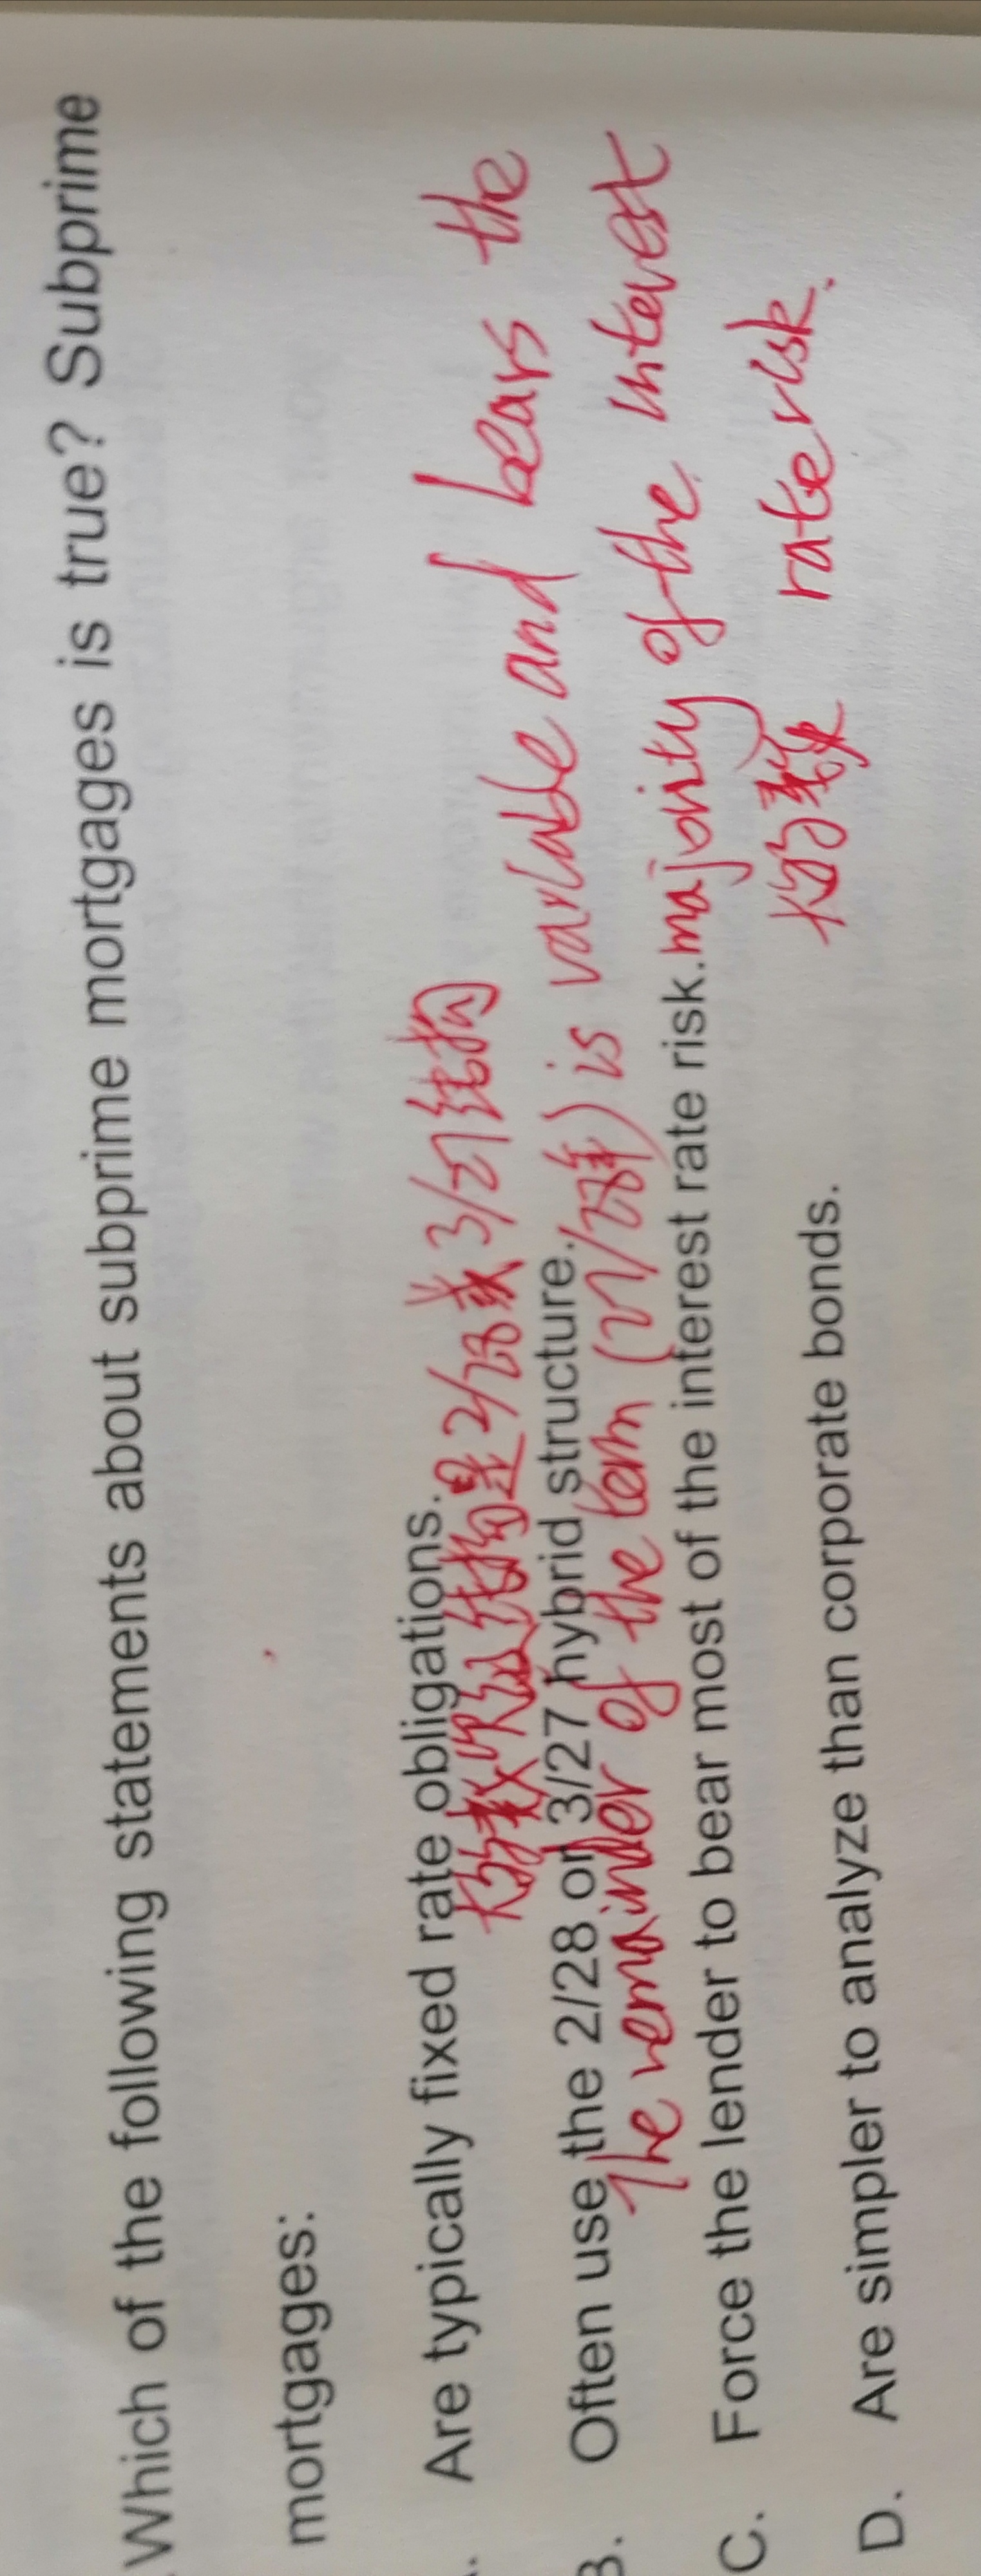 Which of the following statements about subprime mortgages is true? Subprime
mortgages:
. Are typically fixed rate obligations.
大多数次级结构是2/28或3/27结构
B. Often use the 2/28 or 3/27 hybrid structure.
The remainder of the term (27/28年) is variable and bears the
C. Force the lender to bear most of the interest rate risk.
majority of the interest
大多数
rate risk.
D. Are simpler to analyze than corporate bonds.